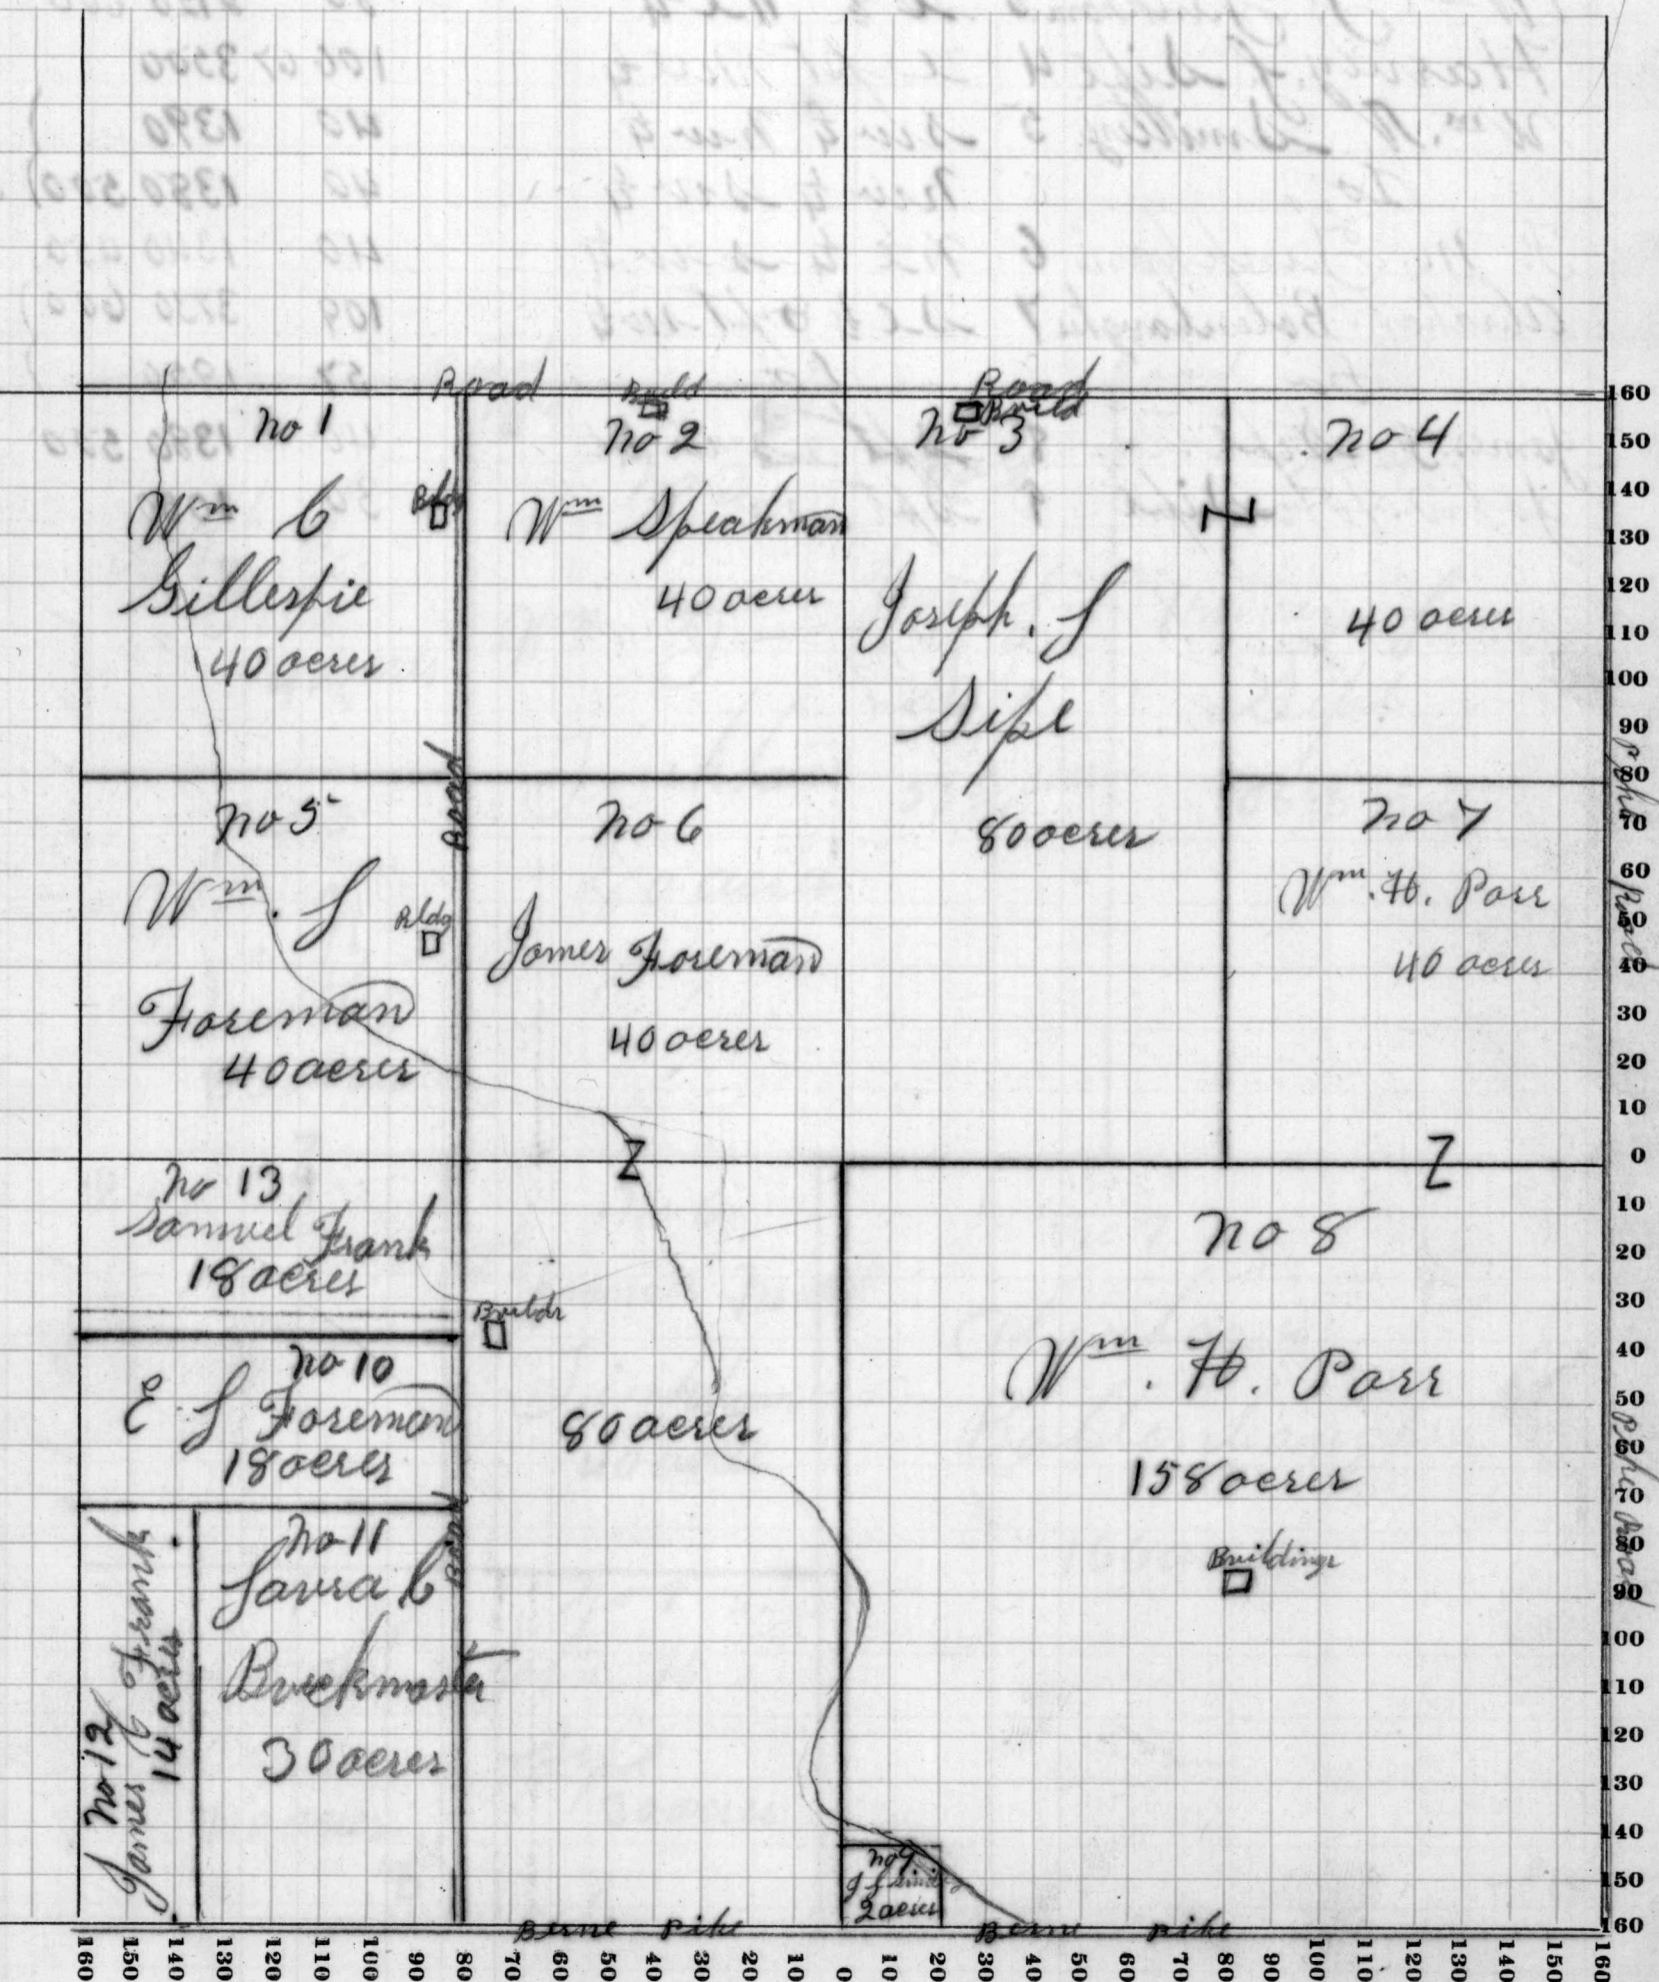 Road
Road
Build
Build
no 1
Wm C
Gillespie
40 acres
Bldg
no 2
Wm Speakman
40 acres
no 3
Joseph. S
Sipe
80 acres
no 4
40 acres
Road
no 5
Wm. S
Foreman
40 acres
Bldg
no 6
James Foreman
40 acres
no 7
Wm. H. Parr
40 acres
Z
Z
Z
no 13
Samuel Frank
18 acres
Builds
no 10
E S Foreman
18 acres
80 acres
no 8
Wm. H. Parr
158 acres
Buildings
no 11
Laura C
Buckmaster
30 acres
Road
no 12
James C Frank
14 acres
no 9
2 acres
Berne Pike
Berne Pike
Road
Road
160
150
140
130
120
110
100
90
80
70
60
50
40
30
20
10
0
10
20
30
40
50
60
70
80
90
100
110
120
130
140
150
160
160 150 140 130 120 110 100 90 80 70 60 50 40 30 20 10 0 10 20 30 40 50 60 70 80 90 100 110 120 130 140 150 160